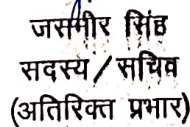 जसमीर सिंह
सदस्य/सचिव
(अतिरिक्त प्रभार)